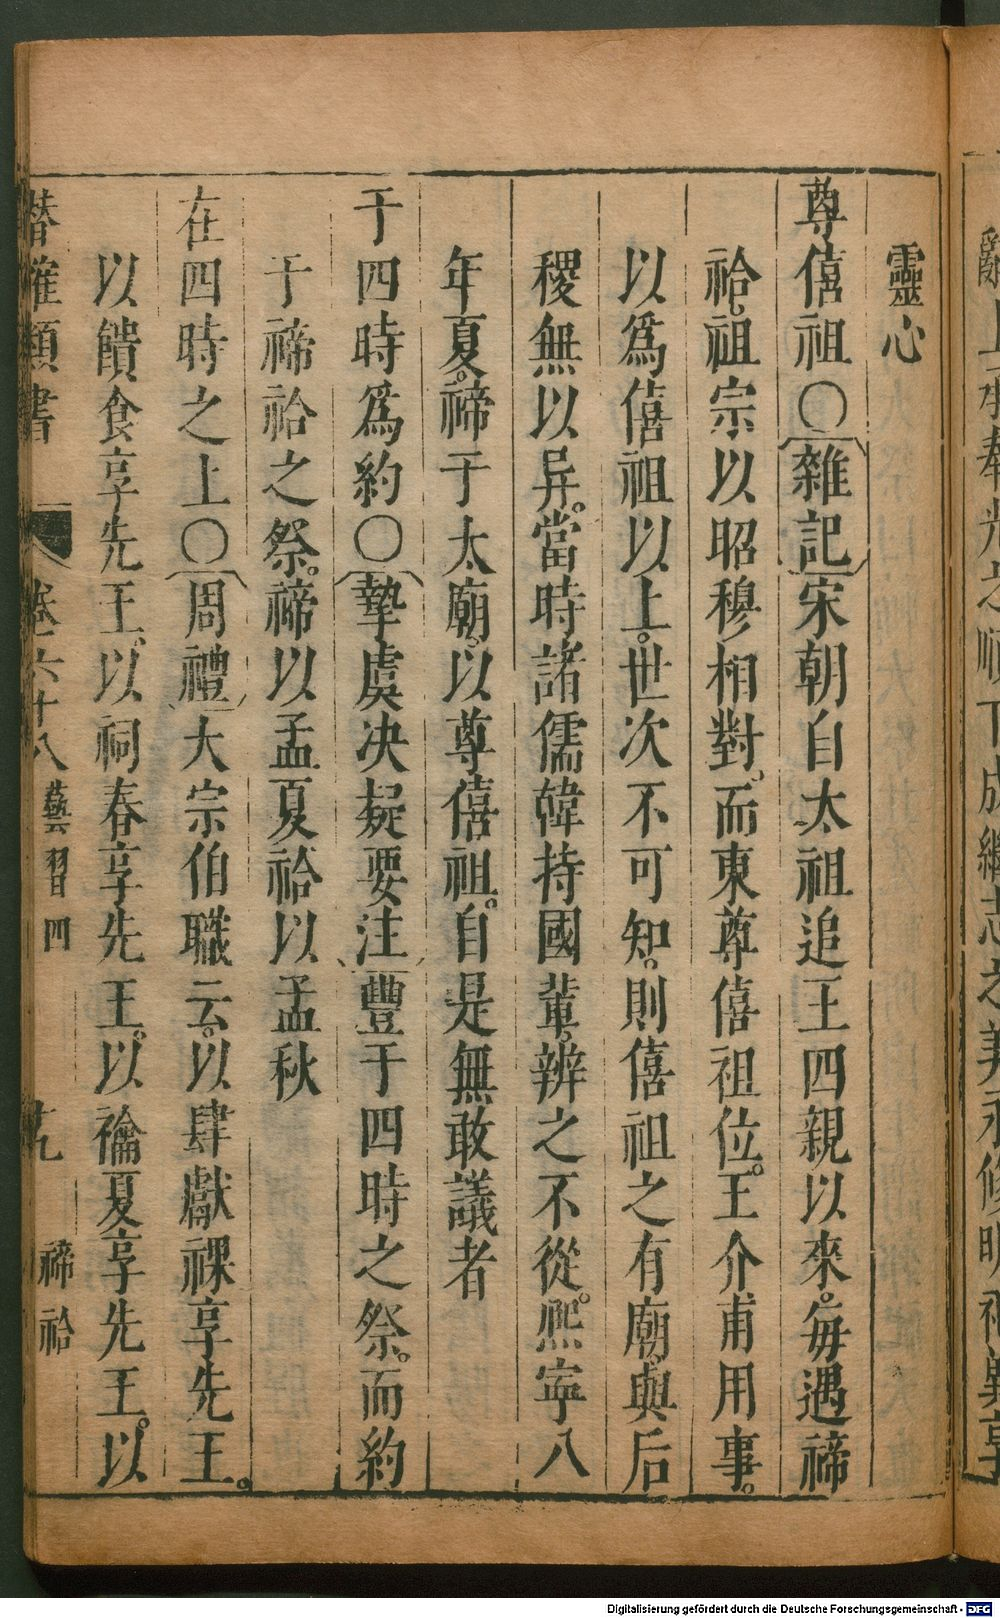 靈心
尊僖祖〇雜記宋朝自太祖追王四親以來。每遇禘
祫。祖宗以昭穆相對。而東尊僖祖位。王介甫用事。
以爲僖祖以上。世次不可知。則僖祖之有廟。與后
稷無以异。當時諸儒韓持國輩。辨之不從。熈寧八
年夏。禘于太廟。以尊僖祖。自是無敢議者
于四時爲約〇摯虞决疑要注豐于四時之祭。而約
于禘祫之祭。禘以孟夏祫以孟秋
在四時之上〇周禮大宗伯職云。以肆獻祼享先王。
以饋食享先王。以祠春享先王。以禴夏享先王。以
潛確類書 卷六十八 藝習四 十九 禘祫
Digitalisierung gefördert durch die Deutsche Forschungsgemeinschaft - DFG